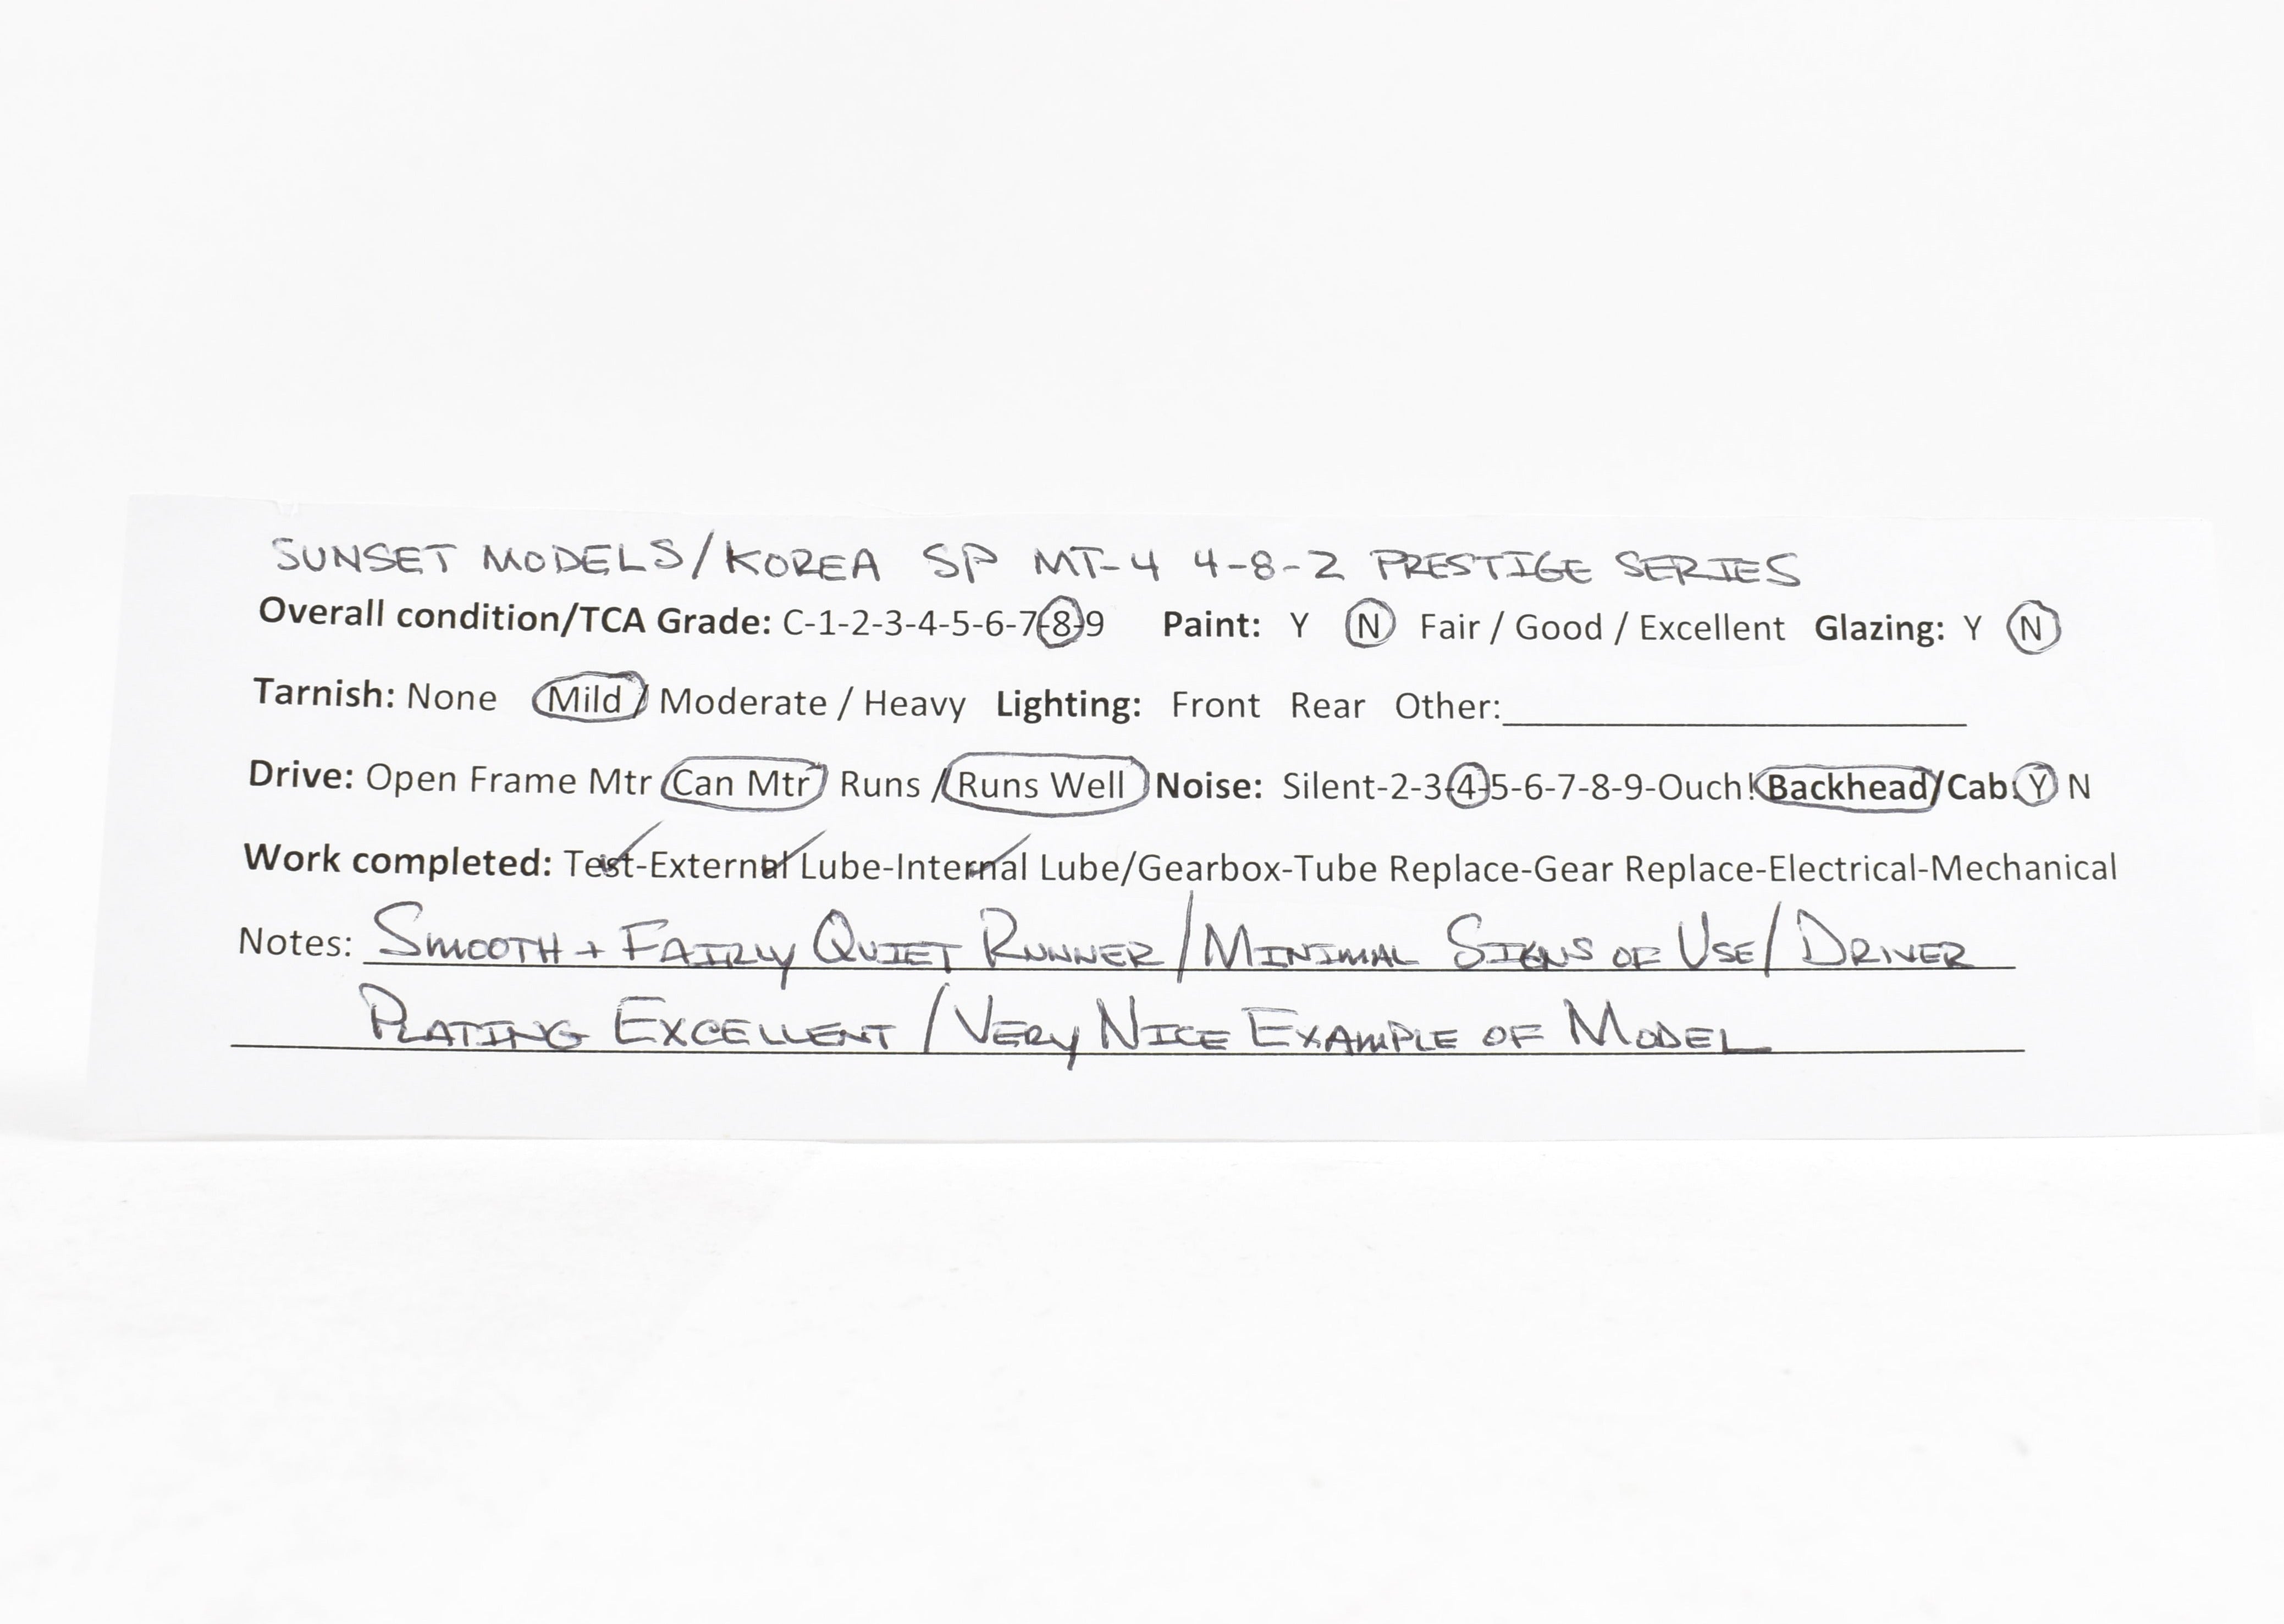 SUNSET MODELS/KOREA SP MT-4 4-8-2 PRESTIGE SERIES
Overall condition/TCA Grade: C-1-2-3-4-5-6-7-8-9 Paint: Y N Fair / Good / Excellent Glazing: Y N
Tarnish: None Mild / Moderate / Heavy Lighting: Front Rear Other:
Drive: Open Frame Mtr Can Mtr Runs / Runs Well Noise: Silent-2-3-4-5-6-7-8-9-Ouch! Backhead/Cab: Y N
Work completed: Test-External Lube-Internal Lube/Gearbox-Tube Replace-Gear Replace-Electrical-Mechanical
Notes: SMOOTH + FAIRLY QUIET RUNNER/MINIMAL SIGNS OF USE/DRIVER
PLATING EXCELLENT/VERY NICE EXAMPLE OF MODEL